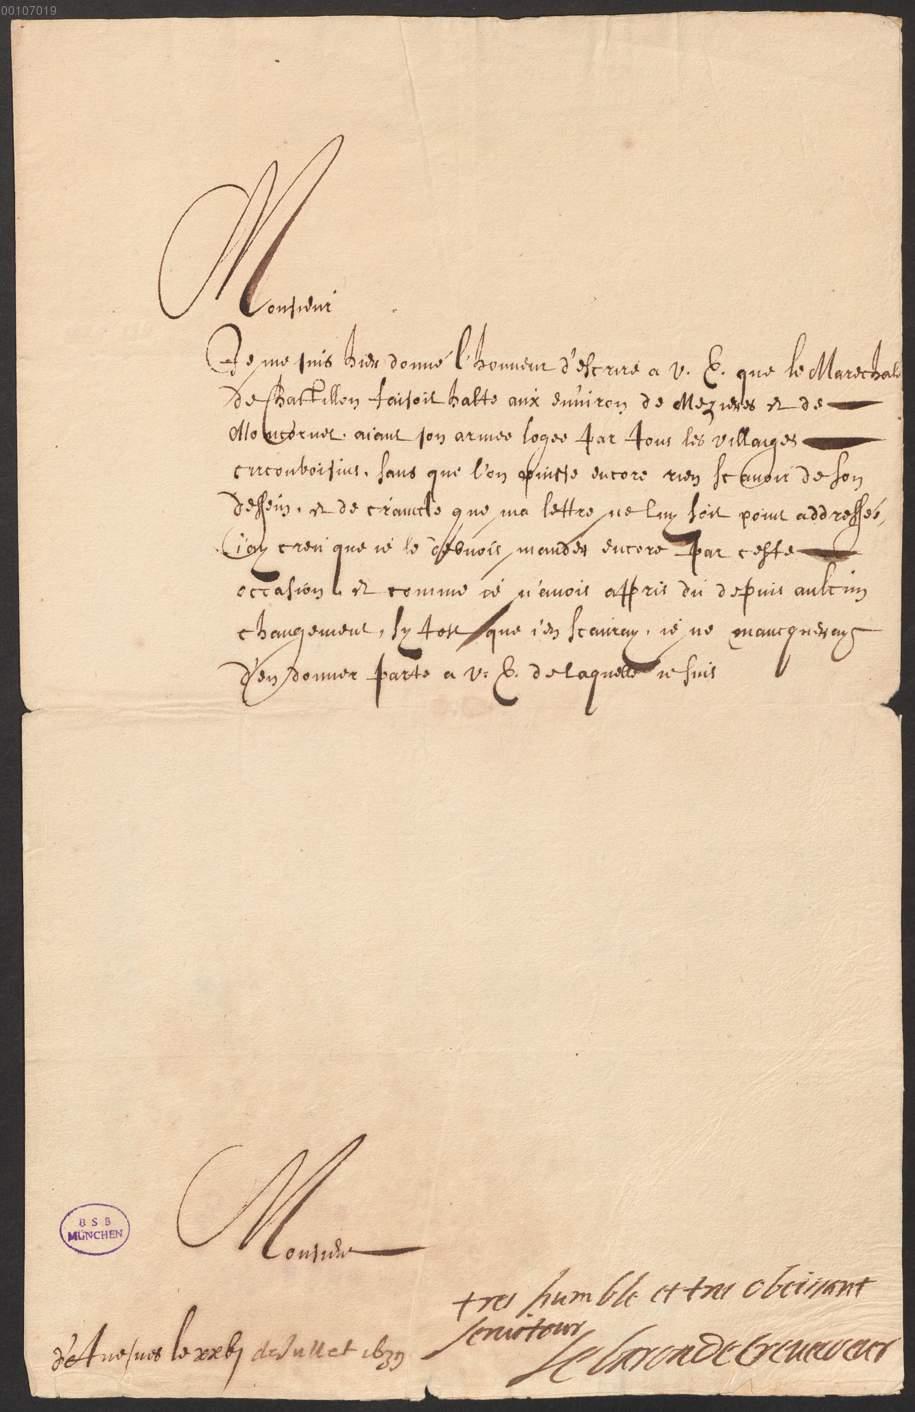 00107019
Monsieur
Je me suis hier donné l'honneur d'escrire a v. E. que le Marechal
de Chattillon faisoit halte aux environ de Mezieres et de
Moncornet. aiant son armee logee par tous les villaiges
circonvoisins, sans que l'on puisse encore rien scavoir de son
dessein, et de craincte que ma lettre ne luy soit point addressée,
j'ay creu que ie le debvois mander encore par ceste
occasion, et comme ie n'avois appris du depuis aulcun
changement, sy tost que j'en scauray, ie ne mancqueray
d'en donner parte a v. E. de laquelle ie suis
Monsieur
BSB
MÜNCHEN
tres humble et tres obeissant
serviteur
d'Avesnes le xxbj de Jullet 1639
le baron de